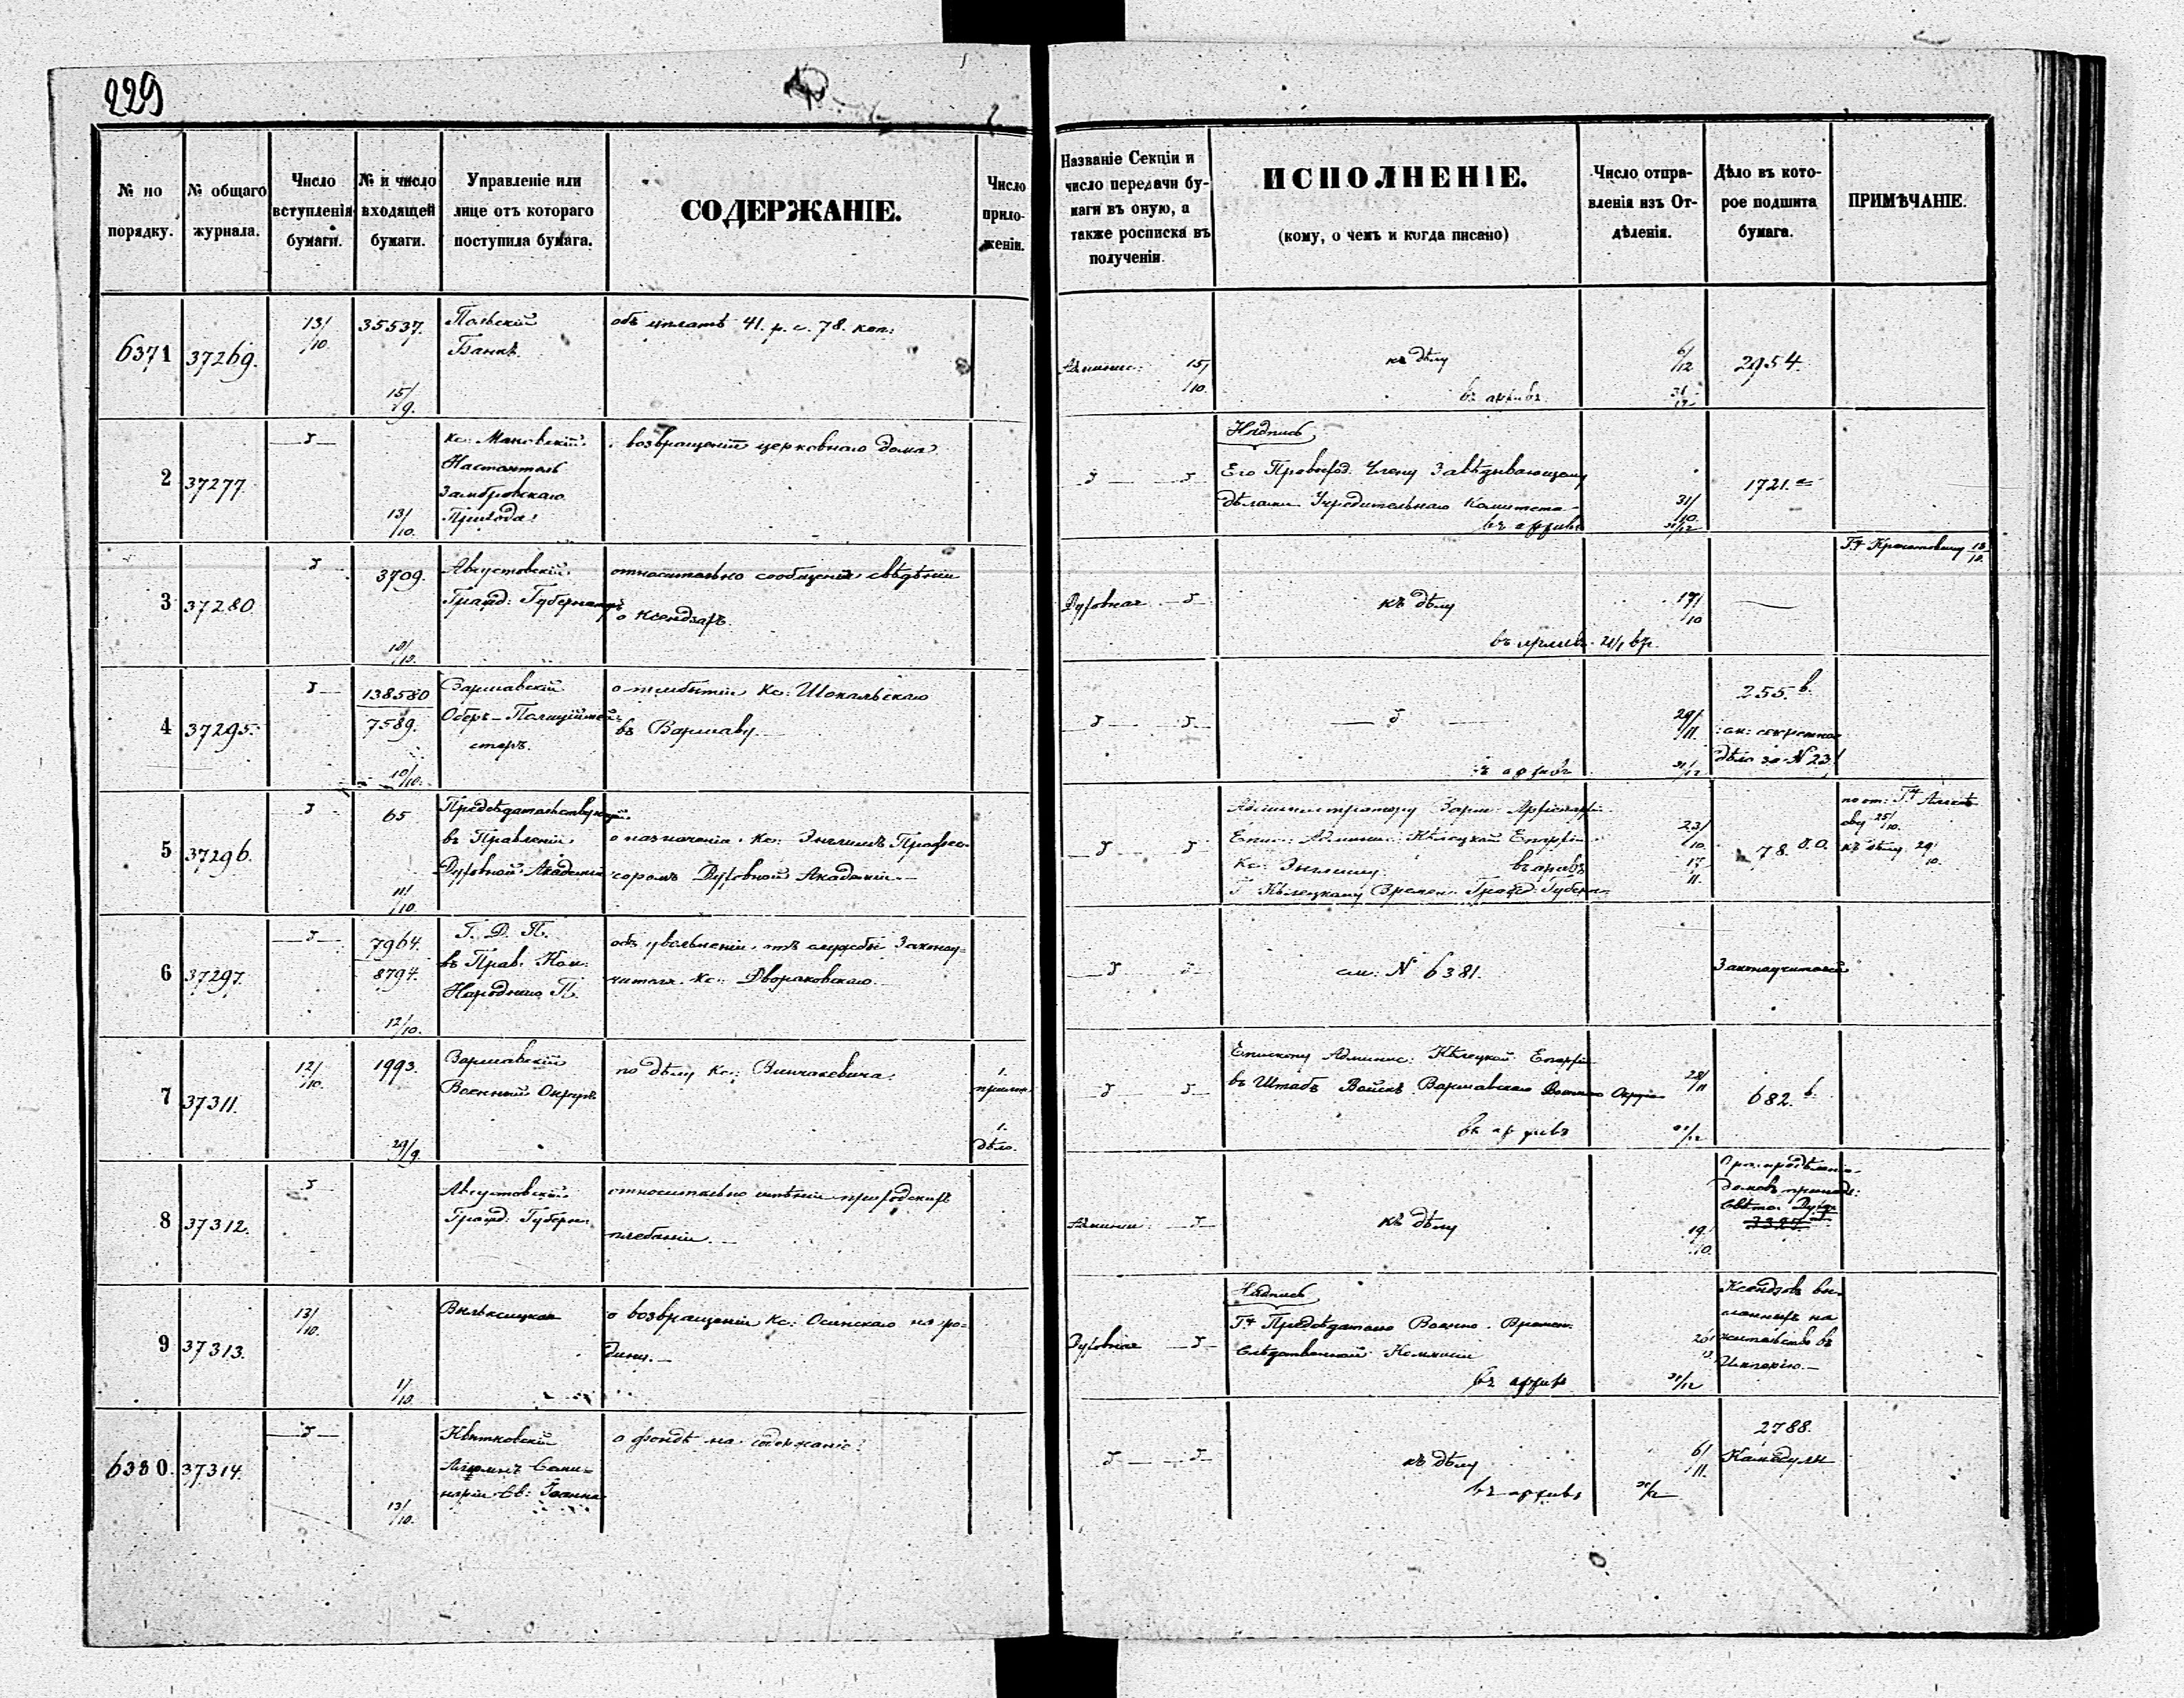 229
№ по порядку.
№ общаго журнала.
Число вступленія бумаги.
№ и число входящей бумаги.
Управленіе или лице отъ котораго поступила бумага.
СОДЕРЖАНІЕ.
Число приложеній.
Названіе Секціи и число передачи бумаги въ оную, а также росписка въ полученіи.
ИСПОЛНЕНІЕ.
(кому, о чемъ и когда писано)
Число отправленія изъ Отдѣленія.
Дѣло въ которое подшита бумага.
ПРИМѢЧАНІЕ.
6371 37269. 13/10. 35537. 15/9.
Польскій
Банкъ.
объ уплатѣ 41. р. с. 78. коп:
Админис: 15/10.
къ дѣлу 6/12 2954.
въ архивъ
2 37277. 13/10.
Кс: Мановскій
Настоятель
Замбровскаго
Прихода.
возвращеніи церковнаго дома
Надпись
Его Превосход. Члену Завѣдывающему
дѣлами Учредительнаго Комитета 31/10. 1721.
въ архивъ 31/12
3 37280. 3709.
Августовскій
Гражд: Губернаторъ
относительно сообщенія свѣдѣній
о Ксендзахъ.
Духовная
къ дѣлу 17/10
въ архивъ
4 37295. 138580
7589. 10/10.
Варшавскій
Оберъ-Полиціймей-
стеръ.
о прибытіи Кс: Шокальскаго
въ Варшаву.
29/11. 255. в.
секретное
дѣло за № 23
въ архивъ 31/12
5 37296. 65 11/10.
Предсѣдательствующій
въ Правленіи
Духовной Академіи
о назначеніи Кс: Энглишъ Профес-
соромъ Духовной Академіи.
Администратору Варш: Архіепархіи
Епис: Админис: Кѣлецкой Епархіи 23/10.
Кс: Энглишу въ архивъ 17/11.
Г Кѣлецкому Времен: Гражд: Губерн.
78.
25/10.
къ дѣлу 29/10.
6 37297. 7964.
8794. 12/10.
Г. Д. П.
въ Прав. Ком.
Народнаго П.
объ увольненіи отъ службы Законоу-
чителя Кс: Двораковскаго.
см: № 6381.
Законоучителей
7 37311. 12/10. 1993. 29/9.
Варшавскій
Военный Округъ
по дѣлу Кс: Винчакевича.
1.
прилож.
1.
дѣло.
Епископу Админис: Кѣлецкой Епархіи
въ Штабъ Войскъ Варшавскаго Военнаго Округа 28/11 682. в.
въ архивъ 31/12
8 37312.
Августовскій
Гражд: Губерн.
относительно имѣній приходскихъ
плебаній.
Админис:
къ дѣлу 19/10.
9 37313. 13/10. 1/10.
Вильксицкая
о возвращеніи Кс: Осинскаго на ро-
дину.
Духовная
Надпись
Предсѣдателю Военно-Времен.
Слѣдственной Комиссіи
въ архивъ 31/12
Ксендзовъ вы-
сланныхъ на
жительство въ
Имперію.
6380. 37314. 13/10.
Квятковскій
Семи-
наріи Св: Іоанна
о фондѣ на содержаніе.
къ дѣлу 6/11. 2788.
Камедулы
въ архивъ